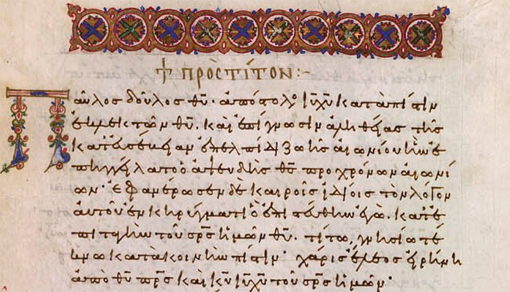 † ΠΡΟΣ ΤΙΤΟΝ :–
Παῦλος δοῦλος θυ. ἀπόστολο ἰυ χυ κατὰ πίστιν
ἐκλεκτῶν θυ. καὶ ἐπίγνωσιν ἀληθείας τῆς
κατ' εὐσέβειαν ἐπ' ἐλπίδι ζωῆς αἰωνίου ἣν ἐ
πηγγείλατο ὁ ἀψευδὴς θς πρὸ χρόνων αἰωνί
ων· ἐφανέρωσεν δὲ καιροῖς ἰδίοις τὸν λόγον
αὐτοῦ ἐν κηρύγματι ὃ ἐπιστεύθην ἐγὼ. κατ' ἐ
πιταγὴν τοῦ σρς ἡμῶν θυ. τίτω γνησίω τέ
κνω κατὰ κοινὴν πίστιν· χάρις ἔλεος εἰρήνη
ἀπὸ θυ πρς καὶ κυ ἰυ χυ τοῦ σρς ἡμῶν·